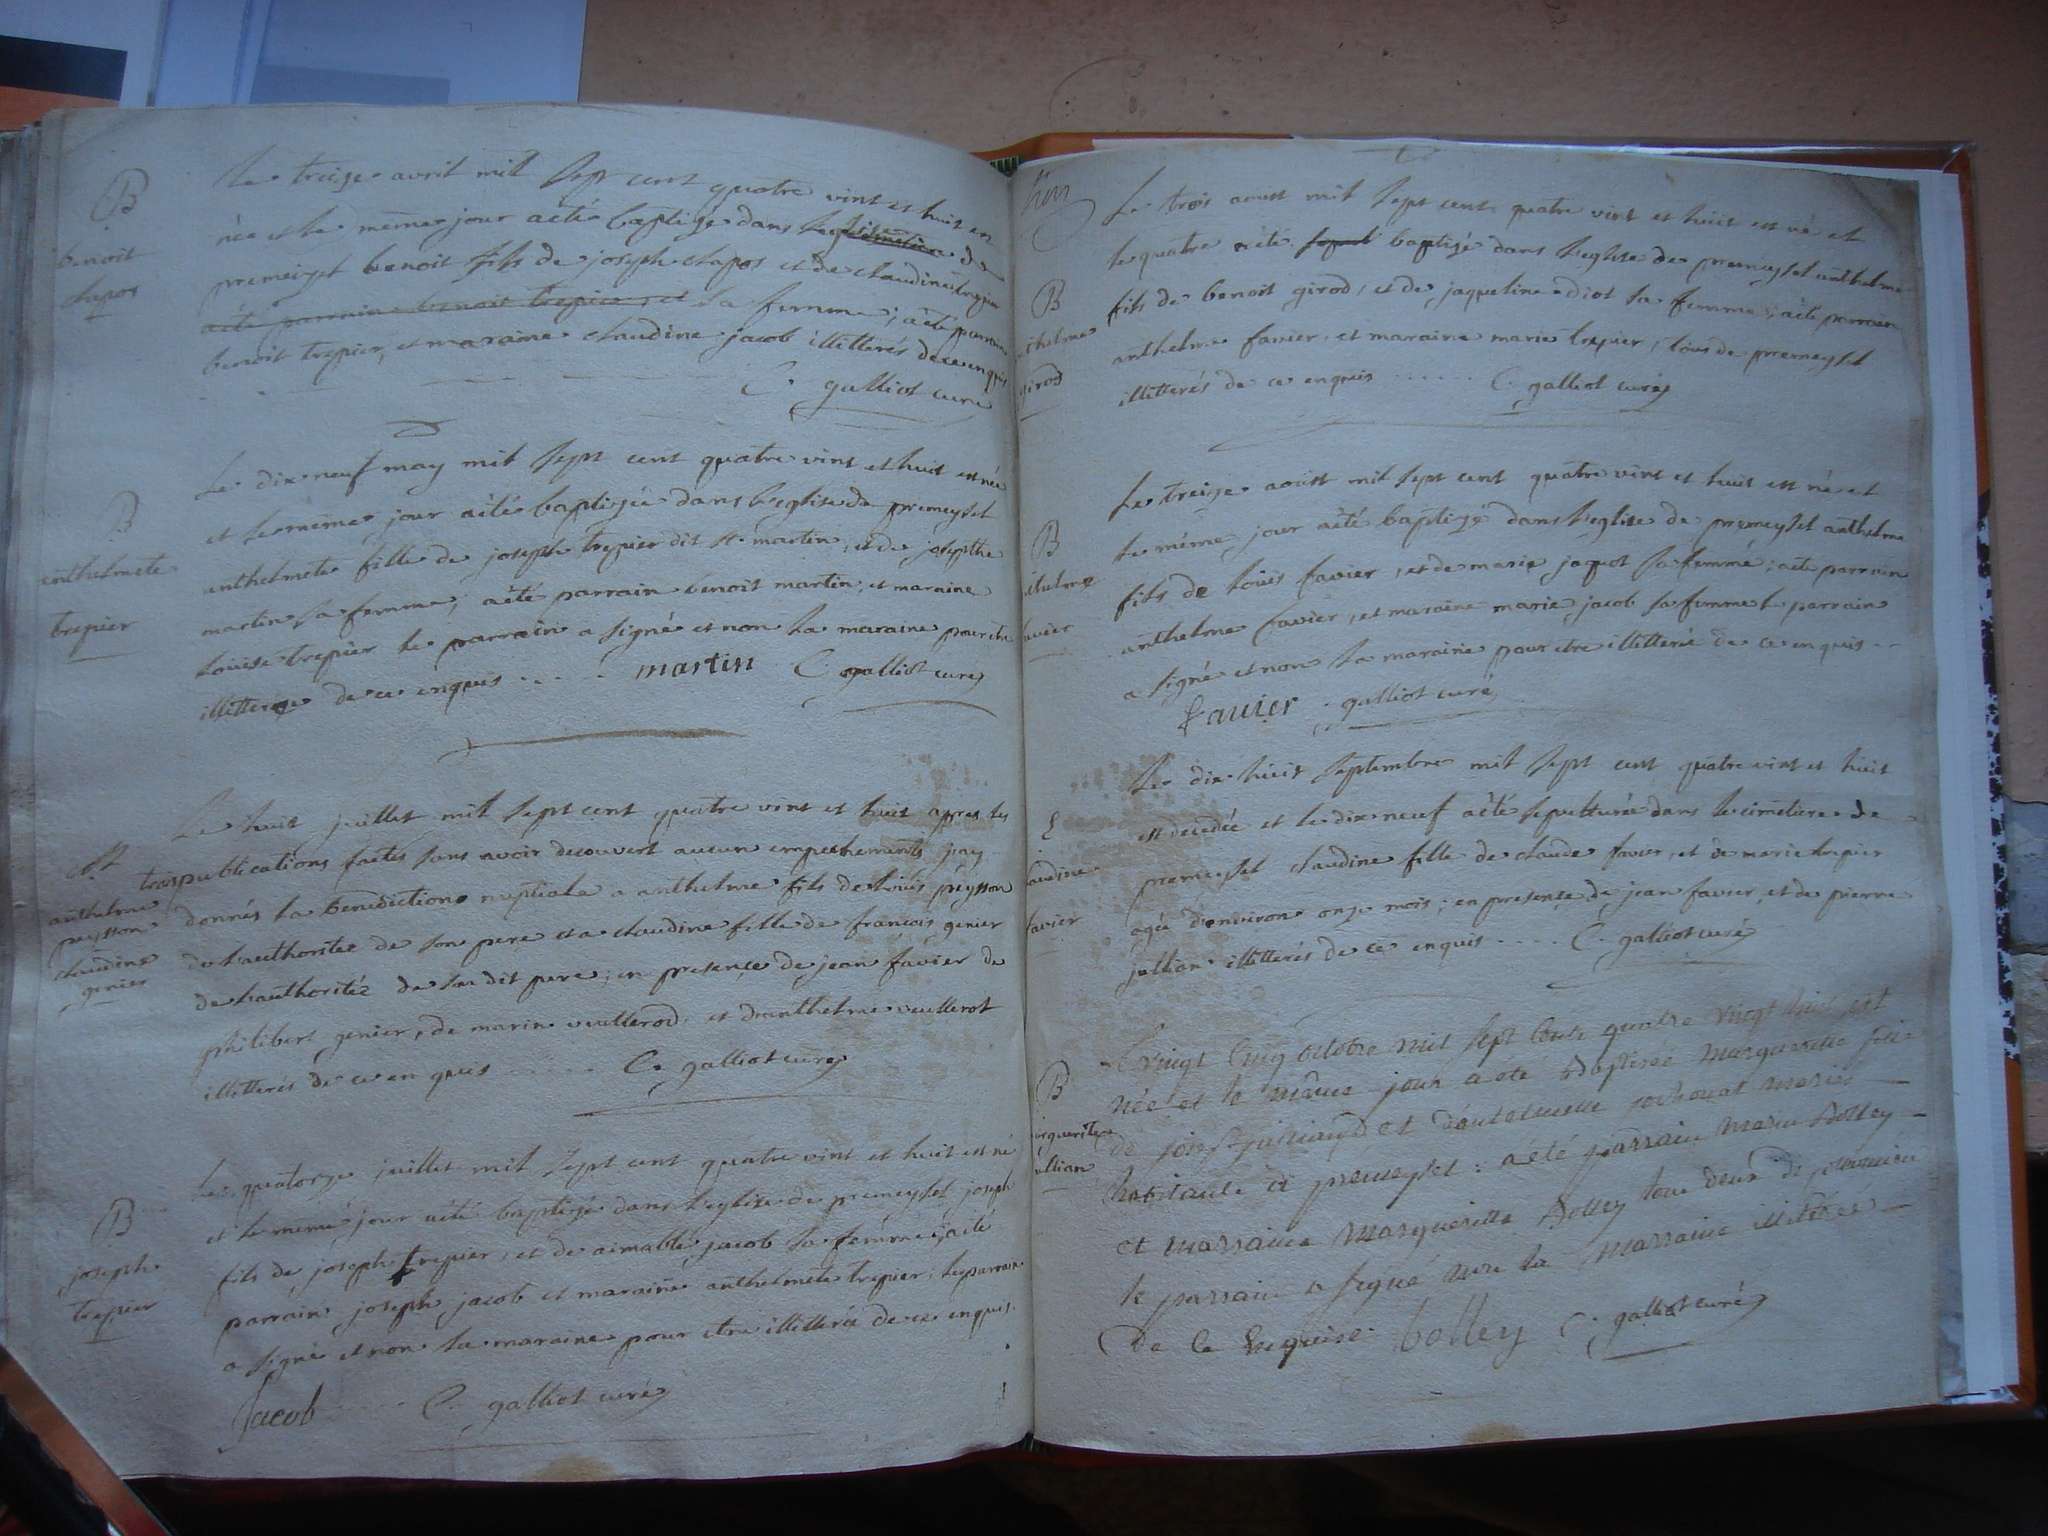 B
benoit
chapos
Le treize avril mil sept cent quatre vint et huit est
née et le même jour aété baptizé dans l'eglise de
premeizel benoit fils de joseph chapos et de claudine trepier
aété parrain benoit trepier, et sa femme; aété parrain
benoit trepier, et maraine claudine jacob illitterés de ce enquis
C. galliot curé
B
anthelmete
trepier
Le dix neuf may mil sept cent quatre vint et huit est née
et le même jour aété baptizée dans l'eglise de premeyzel
anthelmete fille de joseph trepier dit st. martin, et de josepthe
martin sa femme; aété parrain benoit martin, et maraine
Louise trepier le parrain a signé et non la maraine pour etre
illitterée de ce enquis .... martin C. galliot curé
M
anthelme
peysson
claudine
genier
Le huit juillet mil sept cent quatre vint et huit apres les
trois publications faetes sans avoir decouvert aucun empechements jay
donnés la benediction nuptiale a anthelme fils de Louis peysson
de l'authorité de son pere et a claudine fille de francois genier
de l'authorité de son dit pere; en presence de jean favier de
philibert genier, de marin vuillerod, et d'anthelme vuillerot
illitterés de ce en quis ..... C. galliot curé
B
joseph
trepier
Le quatorze juillet mil sept cent quatre vint et huit est né
et le même jour aété baptizé dans l'eglise de premeyzel joseph
fils de joseph trepier, et de aimable jacob sa femme; aété
parrain joseph jacob et maraine anthelmete trepier; le parrain
a signé et non la maraine pour etre illitterée de ce enquis.
Jacob .... C. galliot curé
B
anthelme
girod
Le trois aoust mil sept cent quatre vint et huit est né et
le quatre aété baptizé dans l'eglise de premeyzel anthelme
fils de benoit girod, et de jaqueline diot sa femme; aété parrain
anthelme favier, et maraine marie trepier, tous de premeyzel
illitterés de ce enquis ...... C. galliot curé
B
thelme
favier
Le treize aoust mil sept cent quatre vint et huit est né et
le même jour aété baptizé dans l'eglise de premeyzel anthelme
fils de Louis favier, et de marie jaquot sa femme; aété parrain
anthelme favier, et maraine marie jacob sa femme le parrain
a signé et non la maraine pour etre illitterée de ce enquis ..
favier . galliot curé
S
claudine
favier
Le dix huit septembre mil sept cent quatre vint et huit
est decedée et le dix neuf aété sepulturée dans le cimetiere de
premeyzel claudine fille de claude favier, et de marie trepier
agée d'environ onze mois; en presence de jean favier, et de pierre
jullian illitterés de ce enquis .... C. galliot curé
B
marguerite
jullian
Le vingt cinq octobre mil sept cent quatre vingt huit est
née et le même jour a été Baptisée Marguerite fille
de joseph julliand, et d'antelmette mariés
habitants à premeyzel: a été parrain Marin Bolley
et marraine Marguerite Bolley tous deux de
le parrain a signé non la marraine illiterée
De ce Enquise. bolley C. galliot curé